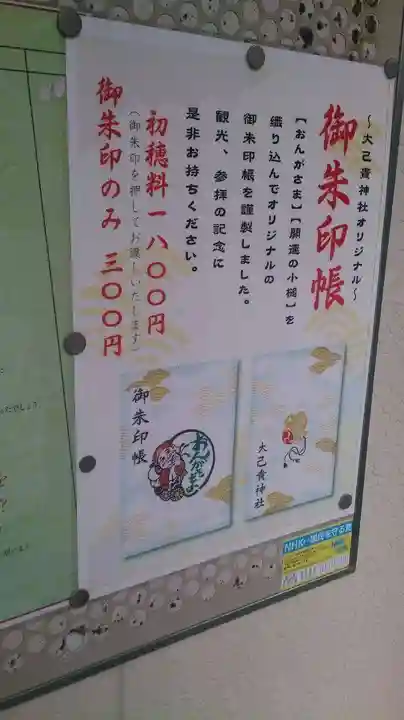 ～大己貴神社オリジナル～
御朱印帳
【おんがさま】【開運の小槌】を
織り込んでオリジナルの
御朱印帳を謹製しました。
観光、参拝の記念に
是非お持ちください。
初穂料一八〇〇円
（御朱印を押してお渡しいたします）
御朱印のみ 三〇〇円
大己貴神社
御朱印帳
おんがさま